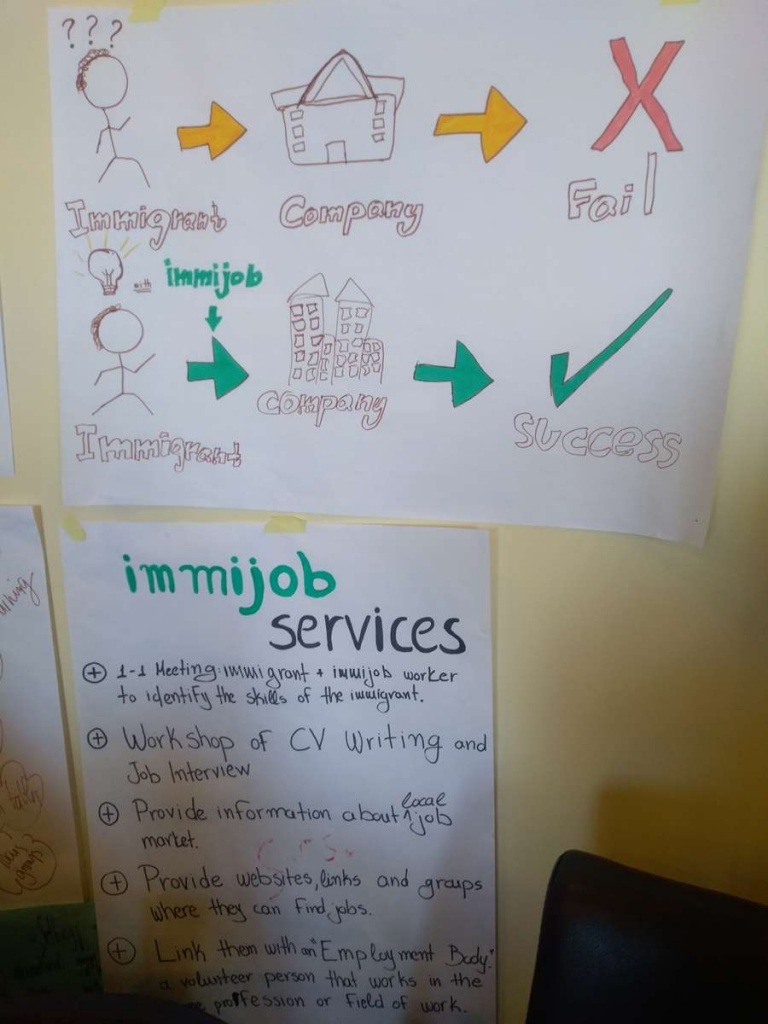 ? ? ?
Immigrant
Company
Fail
with immijob
Immigrant
company
success
immijob
services
1-1 Meeting: immigrant + immijob worker
to identify the skills of the immigrant.
Workshop of CV Writing and
Job Interview
Provide information about local job
market.
Provide websites, links and groups
where they can find jobs.
Link them with an "Employment Body":
a volunteer person that works in the
profession or field of work.